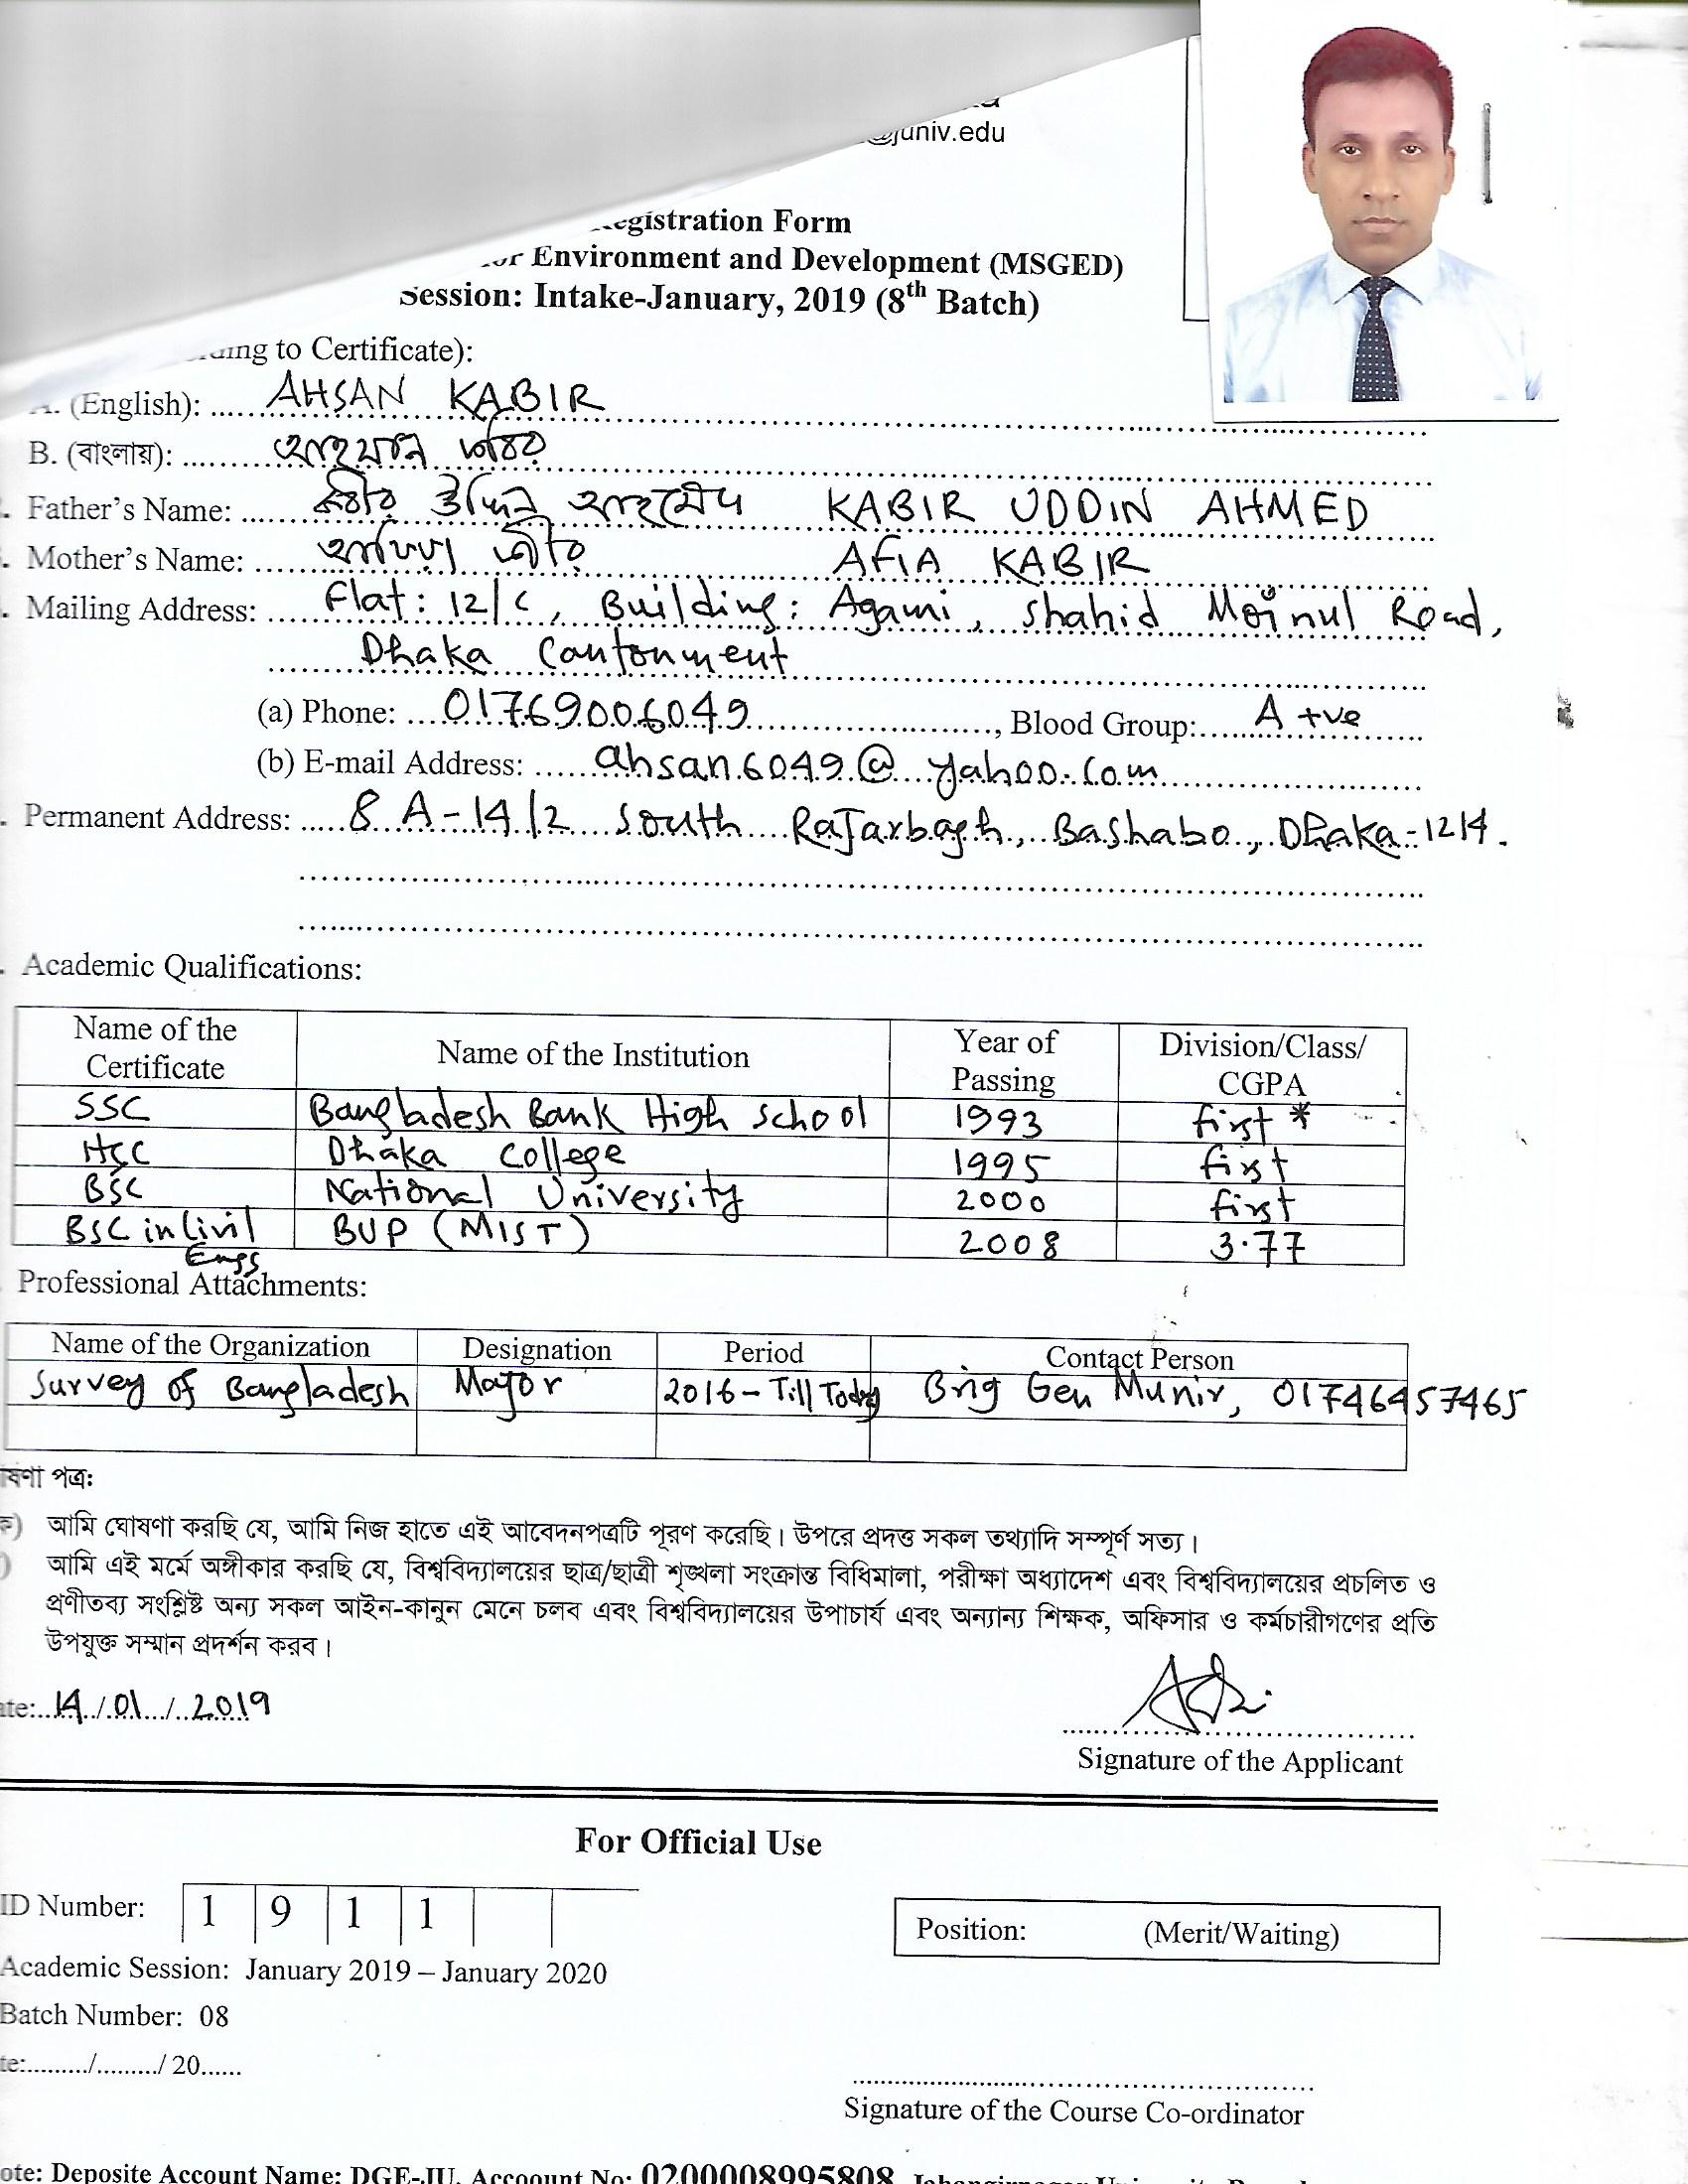 @juniv.edu
Registration Form
Environment and Development (MSGED)
Session: Intake-January, 2019 (8th Batch)
to Certificate):
A. (English): AHSAN KABIR
B. (বাংলায়): আহসান কবির
Father's Name: কবীর উদ্দিন আহমেদ KABIR UDDIN AHMED
Mother's Name: কবীর AFIA KABIR
Mailing Address: Flat: 12/C, Building: Agami, Shahid Moinul Road,
Dhaka Cantonment
(a) Phone: 01769006049, Blood Group: A +ve
(b) E-mail Address: ahsan6049@yahoo.com
Permanent Address: 8 A-14/2 South Rajarbagh, Bashabo, Dhaka-1214.
Academic Qualifications:
Name of the Certificate Name of the Institution Year of Passing Division/Class/ CGPA
SSC Bangladesh Bank High School 1993 first *
HSC Dhaka College 1995 first
BSC National University 2000 first
BSC in Civil Engg BUP (MIST) 2008 3.77
Professional Attachments:
Name of the Organization Designation Period Contact Person
Survey of Bangladesh Major 2016-Till Today Brig Gen Munir, 01746457465
পত্র:
আমি ঘোষণা করছি যে, আমি নিজ হাতে এই আবেদনপত্রটি পূরণ করেছি। উপরে প্রদত্ত সকল তথ্যাদি সম্পূর্ণ সত্য।
আমি এই মর্মে অঙ্গীকার করছি যে, বিশ্ববিদ্যালয়ের ছাত্র/ছাত্রী শৃঙ্খলা সংক্রান্ত বিধিমালা, পরীক্ষা অধ্যাদেশ এবং বিশ্ববিদ্যালয়ের প্রচলিত ও
প্রণীতব্য সংশ্লিষ্ট অন্য সকল আইন-কানুন মেনে চলব এবং বিশ্ববিদ্যালয়ের উপাচার্য এবং অন্যান্য শিক্ষক, অফিসার ও কর্মচারীগণের প্রতি
উপযুক্ত সম্মান প্রদর্শন করব।
14/01/2019
Signature of the Applicant
For Official Use
ID Number: 1 9 1 1
Position: (Merit/Waiting)
Academic Session: January 2019 – January 2020
Batch Number: 08
/ / 20
Signature of the Course Co-ordinator
Deposite Account Name: DGE-JU, Accoount No: 0200008995808